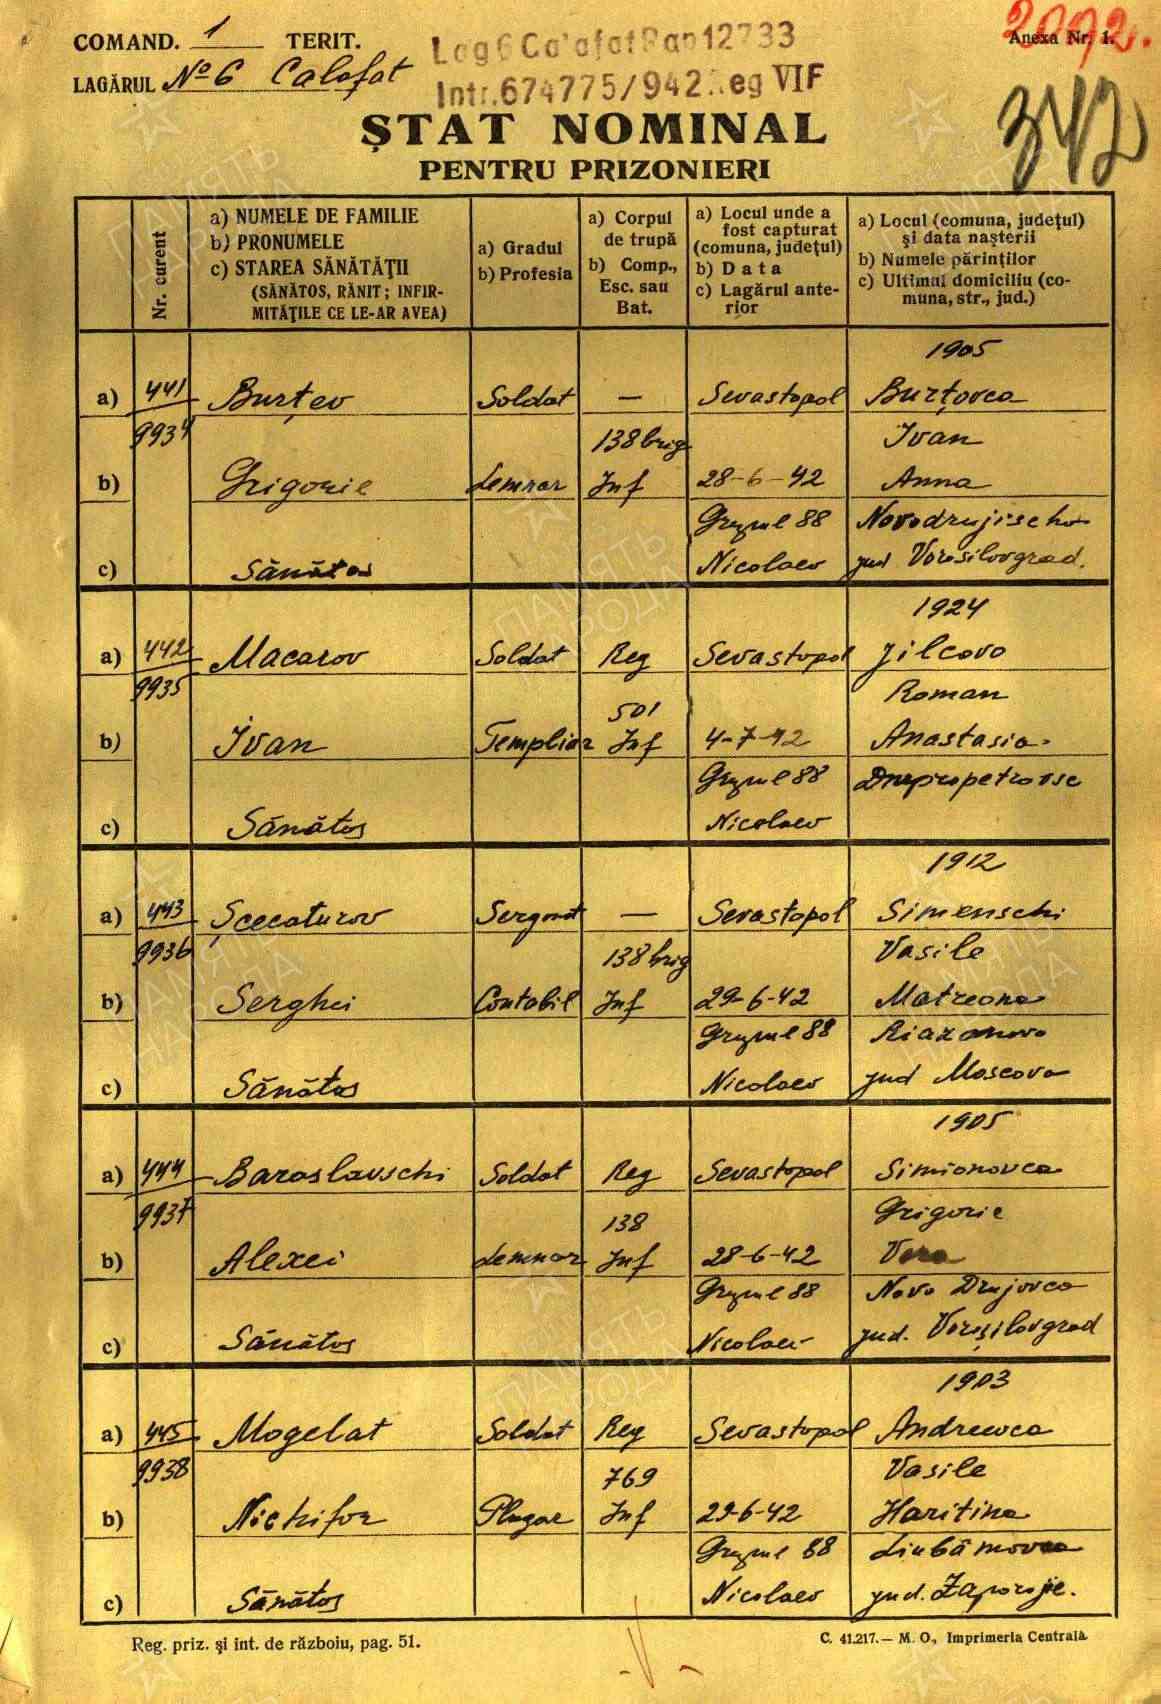 COMAND. 1 TERIT.
LAGĂRUL No 6 Calafat
Lag 6 Calafat Rap 12733
Intr. 674775/942 Reg VIF
2092.
Anexa Nr. 1.
342
ȘTAT NOMINAL
PENTRU PRIZONIERI
Nr. curent
a) NUMELE DE FAMILIE
b) PRONUMELE
c) STAREA SĂNĂTĂȚII
(SĂNĂTOS, RĂNIT; INFIR-
MITĂȚILE CE LE-AR AVEA)
a) Gradul
b) Profesia
a) Corpul
de trupă
b) Comp.,
Esc. sau
Bat.
a) Locul unde a
fost capturat
(comuna, județul)
b) Data
c) Lagărul ante-
rior
a) Locul (comuna, județul)
și data nașterii
b) Numele părinților
c) Ultimul domiciliu (co-
muna, str., jud.)
1905
a) 441 Burțev Soldat — Sevastopol Burțovca
9934 138 brig Ivan
b) Grigorie Lemnar Inf 28-6-42 Anna
Grupul 88 Novodrujischo
c) Sănătos Nicolaev jud Vorosilovgrad.
1924
a) 442 Macarov Soldat Reg Sevastopol Jilcovo
9935 501 Roman
b) Ivan Templiar Inf 4-7-42 Anastasia
Grupul 88 Dnepropetrovsc
c) Sănătos Nicolaev
1912
a) 443 Șcecaturov Sergent — Sevastopol Simenschi
9936 138 brig Vasile
b) Serghei Contabil Inf 29-6-42 Matreona
Grupul 88 Riazanovo
c) Sănătos Nicolaev jud Moscova
1905
a) 444 Baraslavschi Soldat Reg Sevastopol Simionovca
9937 138 Grigorie
b) Alexei Lemnar Inf 28-6-42 Vera
Grupul 88 Novo Drujovca
c) Sănătos Nicolaev jud. Voroșilovgrad
1903
a) 445 Mogelat Soldat Reg Sevastopol Andreevca
9938 769 Vasile
b) Nichifor Plugar Inf 29-6-42 Haritina
Grupul 88 Liubămovca
c) Sănătos Nicolaev jud. Zaporojie.
Reg. priz. și int. de războiu, pag. 51.
C. 41.217.— M. O., Imprimeria Centrală
ПАМЯТЬ
НАРОДА